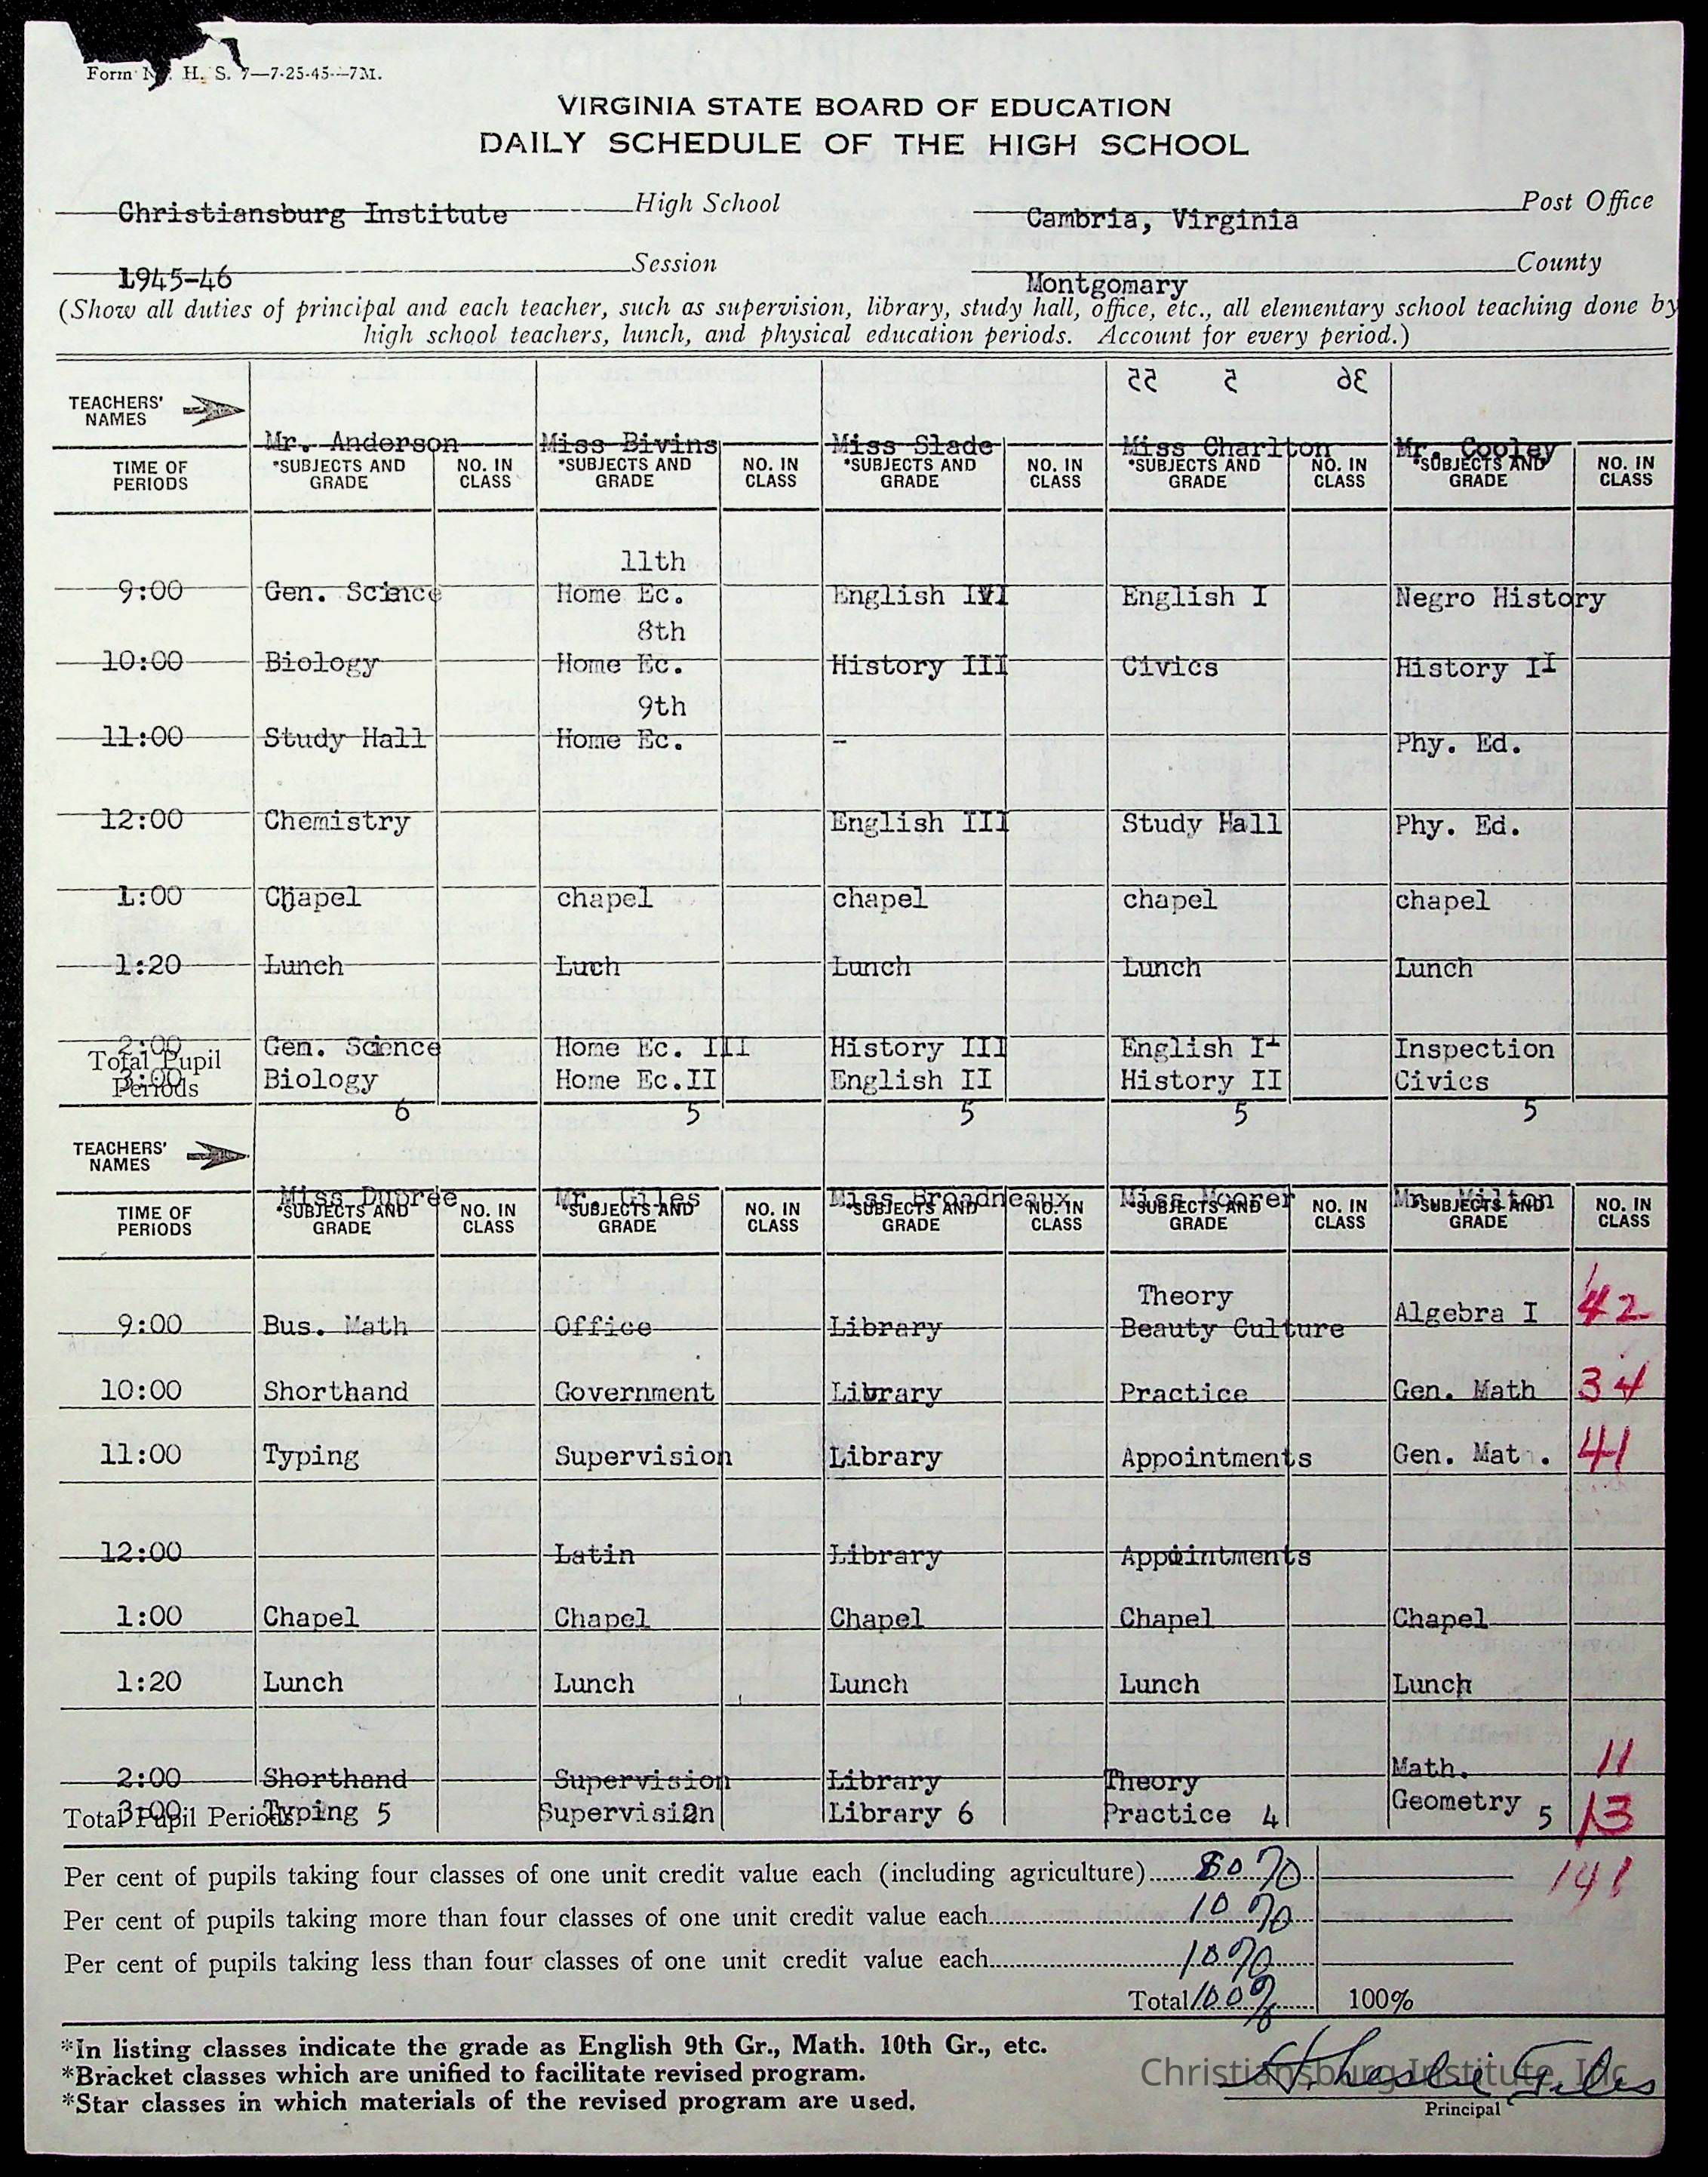 Form No. H. S. 7—7-25-45—7M.
VIRGINIA STATE BOARD OF EDUCATION
DAILY SCHEDULE OF THE HIGH SCHOOL
Christiansburg Institute High School Cambria, Virginia Post Office
1945-46 Session Montgomary County
(Show all duties of principal and each teacher, such as supervision, library, study hall, office, etc., all elementary school teaching done by
high school teachers, lunch, and physical education periods. Account for every period.)
55 5 36
TEACHERS' NAMES Mr. Anderson Miss Bivins Miss Slade Miss Charlton Mr. Cooley
TIME OF PERIODS *SUBJECTS AND GRADE NO. IN CLASS *SUBJECTS AND GRADE NO. IN CLASS *SUBJECTS AND GRADE NO. IN CLASS *SUBJECTS AND GRADE NO. IN CLASS *SUBJECTS AND GRADE NO. IN CLASS
11th
9:00 Gen. Science Home Ec. English IVI English I Negro History
8th
10:00 Biology Home Ec. History III Civics History II
9th
11:00 Study Hall Home Ec. – Phy. Ed.
12:00 Chemistry English III Study Hall Phy. Ed.
1:00 Chapel chapel chapel chapel chapel
1:20 Lunch Luch Lunch Lunch Lunch
2:00 Gen. Science Home Ec. III History III English I Inspection
Total Pupil Periods
3:00 Biology Home Ec.II English II History II Civics
6 5 5 5 5
TEACHERS' NAMES Miss Dupree Mr. Giles Miss Broadneaux Miss Moorer Mr. Milton
TIME OF PERIODS *SUBJECTS AND GRADE NO. IN CLASS *SUBJECTS AND GRADE NO. IN CLASS *SUBJECTS AND GRADE NO. IN CLASS *SUBJECTS AND GRADE NO. IN CLASS *SUBJECTS AND GRADE NO. IN CLASS
Theory
9:00 Bus. Math Office Library Beauty Culture Algebra I 42
10:00 Shorthand Government Library Practice Gen. Math 34
11:00 Typing Supervision Library Appointments Gen. Mat . 41
12:00 Latin Library Appointments
1:00 Chapel Chapel Chapel Chapel Chapel
1:20 Lunch Lunch Lunch Lunch Lunch
2:00 Shorthand Supervision Library Theory Math. 11
3:00 Typing 5 Supervision 2 Library 6 Practice 4 Geometry 5 13
Total Pupil Periods
Per cent of pupils taking four classes of one unit credit value each (including agriculture) 80% 141
Per cent of pupils taking more than four classes of one unit credit value each 10%
Per cent of pupils taking less than four classes of one unit credit value each 10%
Total 100% 100%
*In listing classes indicate the grade as English 9th Gr., Math. 10th Gr., etc.
*Bracket classes which are unified to facilitate revised program.
*Star classes in which materials of the revised program are used.
Christiansburg Institute, Inc
A. Leslie Giles
Principal